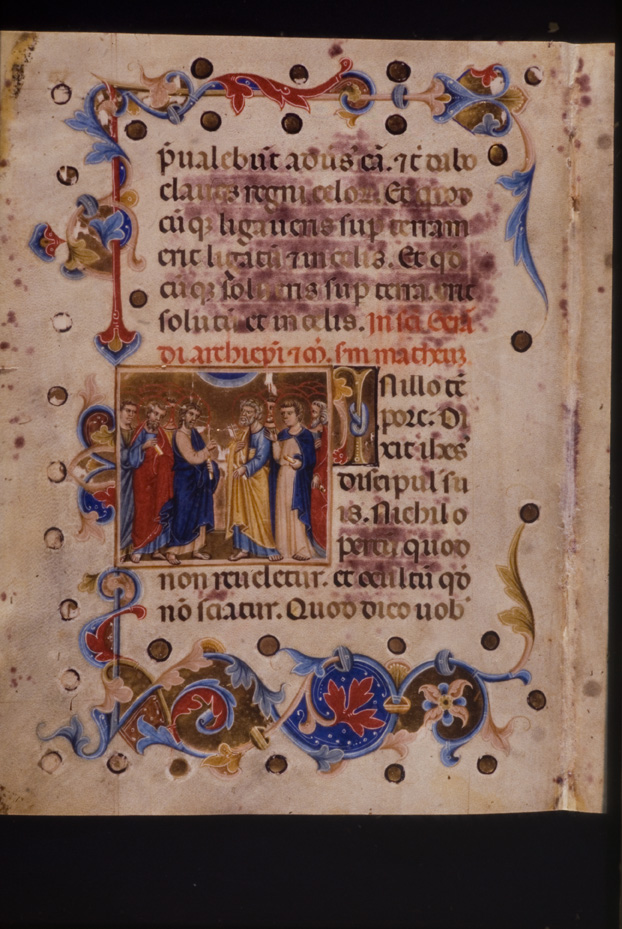 p̄ualebūt aduˢ cā. ⁊ t̄ dabo
clauesqꝫ regni celoꝝ Et quod
cūqꝫ ligaueris sup̱ terram
erit ligatū ⁊ in celis. Et qd̓
cūqꝫ solueris sup̱ terrā erit
solutū et in celis. In sc̄i
di archiepi ⁊ sm̄ matheuꝫ
In illo tē
pore: Di
xit ihes
discipul su
is. Nichil o
pertū quod
non reueletur. et ocultū qd̓
nō sciatur. Quod dico uob̓